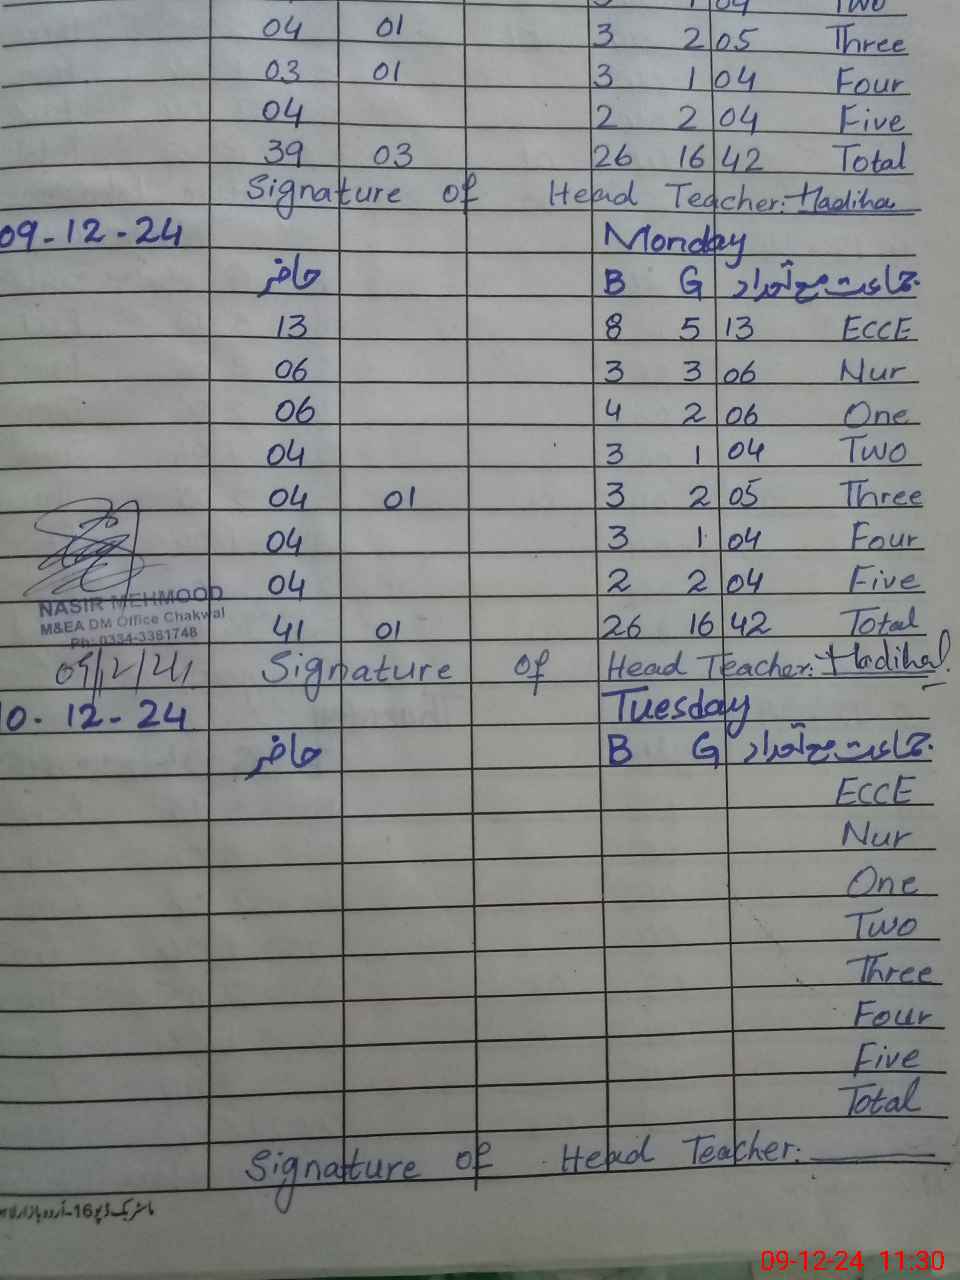 04 01 3 2 05 Three
03 01 3 1 04 Four
04 2 2 04 Five
39 03 26 16 42 Total
Signature of Head Teacher: Hadiha
09-12-24 Monday
حاضر B G جماعت مع تعداد
13 8 5 13 ECCE
06 3 3 06 Nur
06 4 2 06 One
04 3 1 04 Two
04 01 3 2 05 Three
04 3 1 04 Four
04 2 2 04 Five
NASIR MEHMOOD
M&EA DM Office Chakwal
Ph: 0334-3381748
41 01 26 16 42 Total
09/12/24 Signature of Head Teacher: Hadiha
10-12-24 Tuesday
حاضر B G جماعت مع تعداد
ECCE
Nur
One
Two
Three
Four
Five
Total
Signature of Head Teacher:
09-12-24 11:30